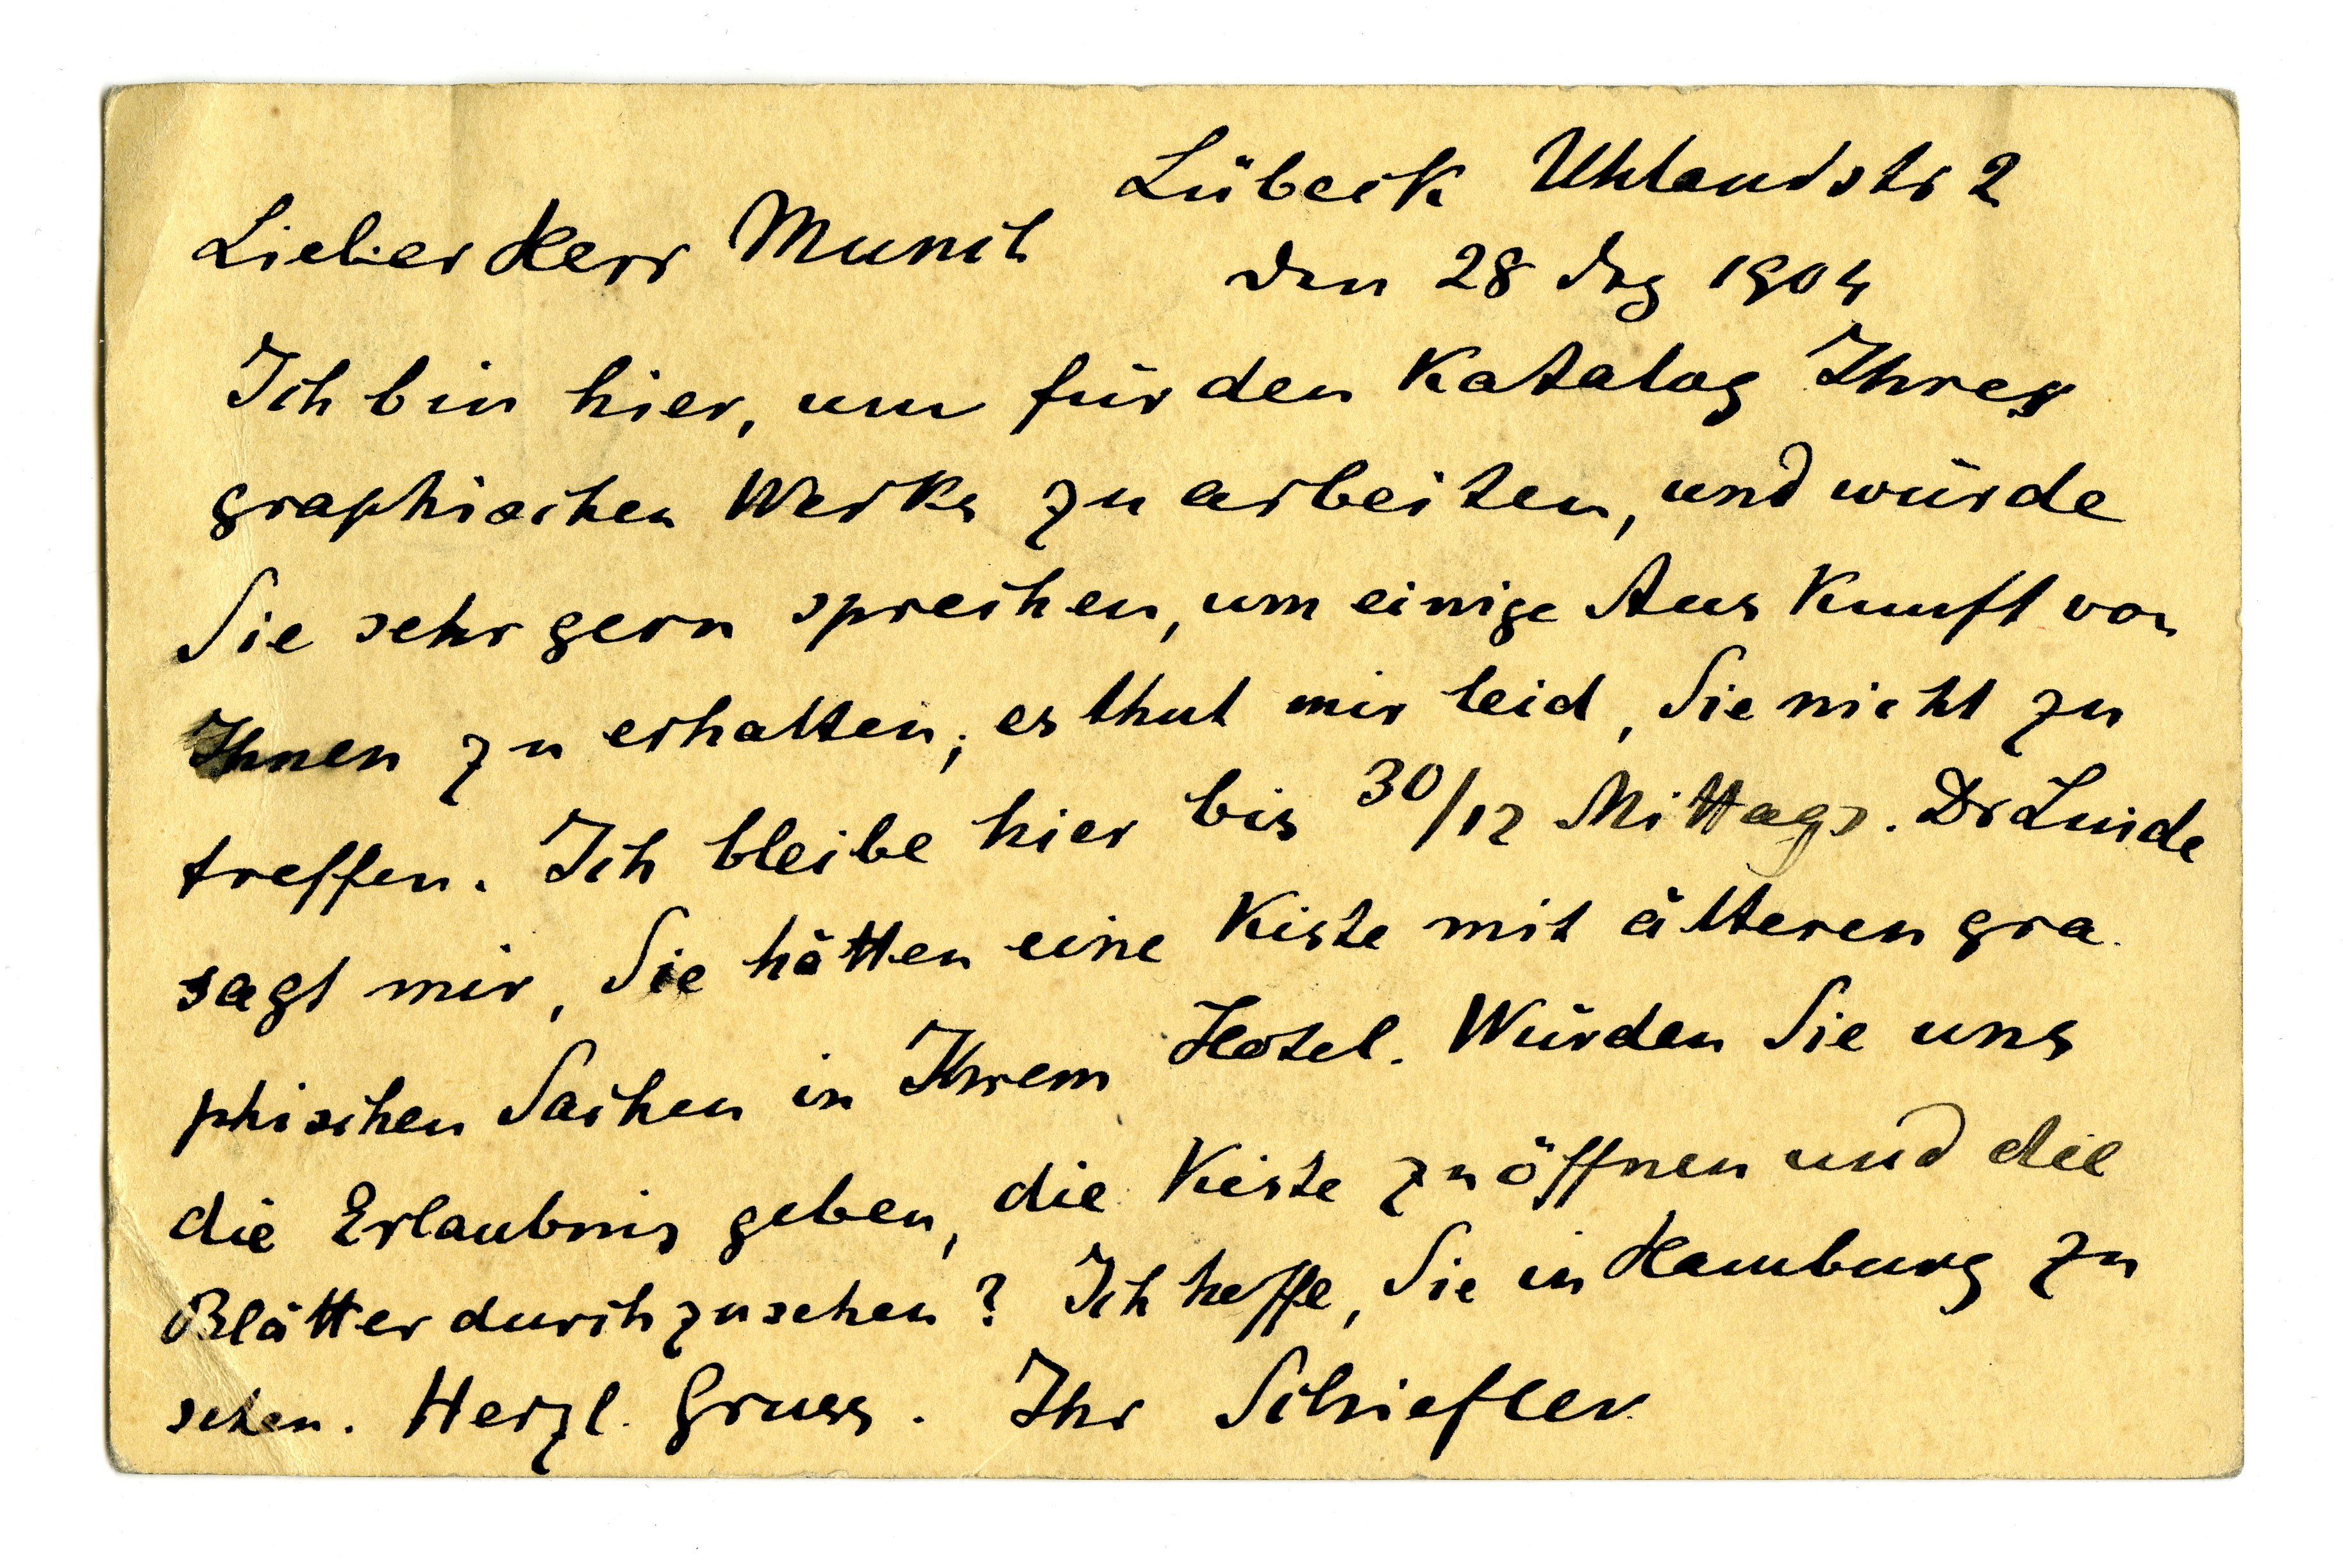 Lübeck Uhlandstr 2
Lieber Herr Munch
den 28 Dez 1904
Ich bin hier, um für den Katalog Ihres
graphischen Werks zu arbeiten, und würde
Sie sehr gern sprechen, um einige Auskunft von
Ihnen zu erhalten; es thut mir leid, Sie nicht zu
treffen. Ich bleibe hier bis 30/12 Mittags. Dr Linde
sagt mir, Sie hätten eine Kiste mit älteren gra-
phischen Sachen in Ihrem Hotel. Würden Sie uns
die Erlaubnis geben, die Kiste zu öffnen und die
Blätter durchzusehen? Ich hoffe, Sie in Hamburg zu
sehen. Herzl. Gruss. Ihr Schiefler